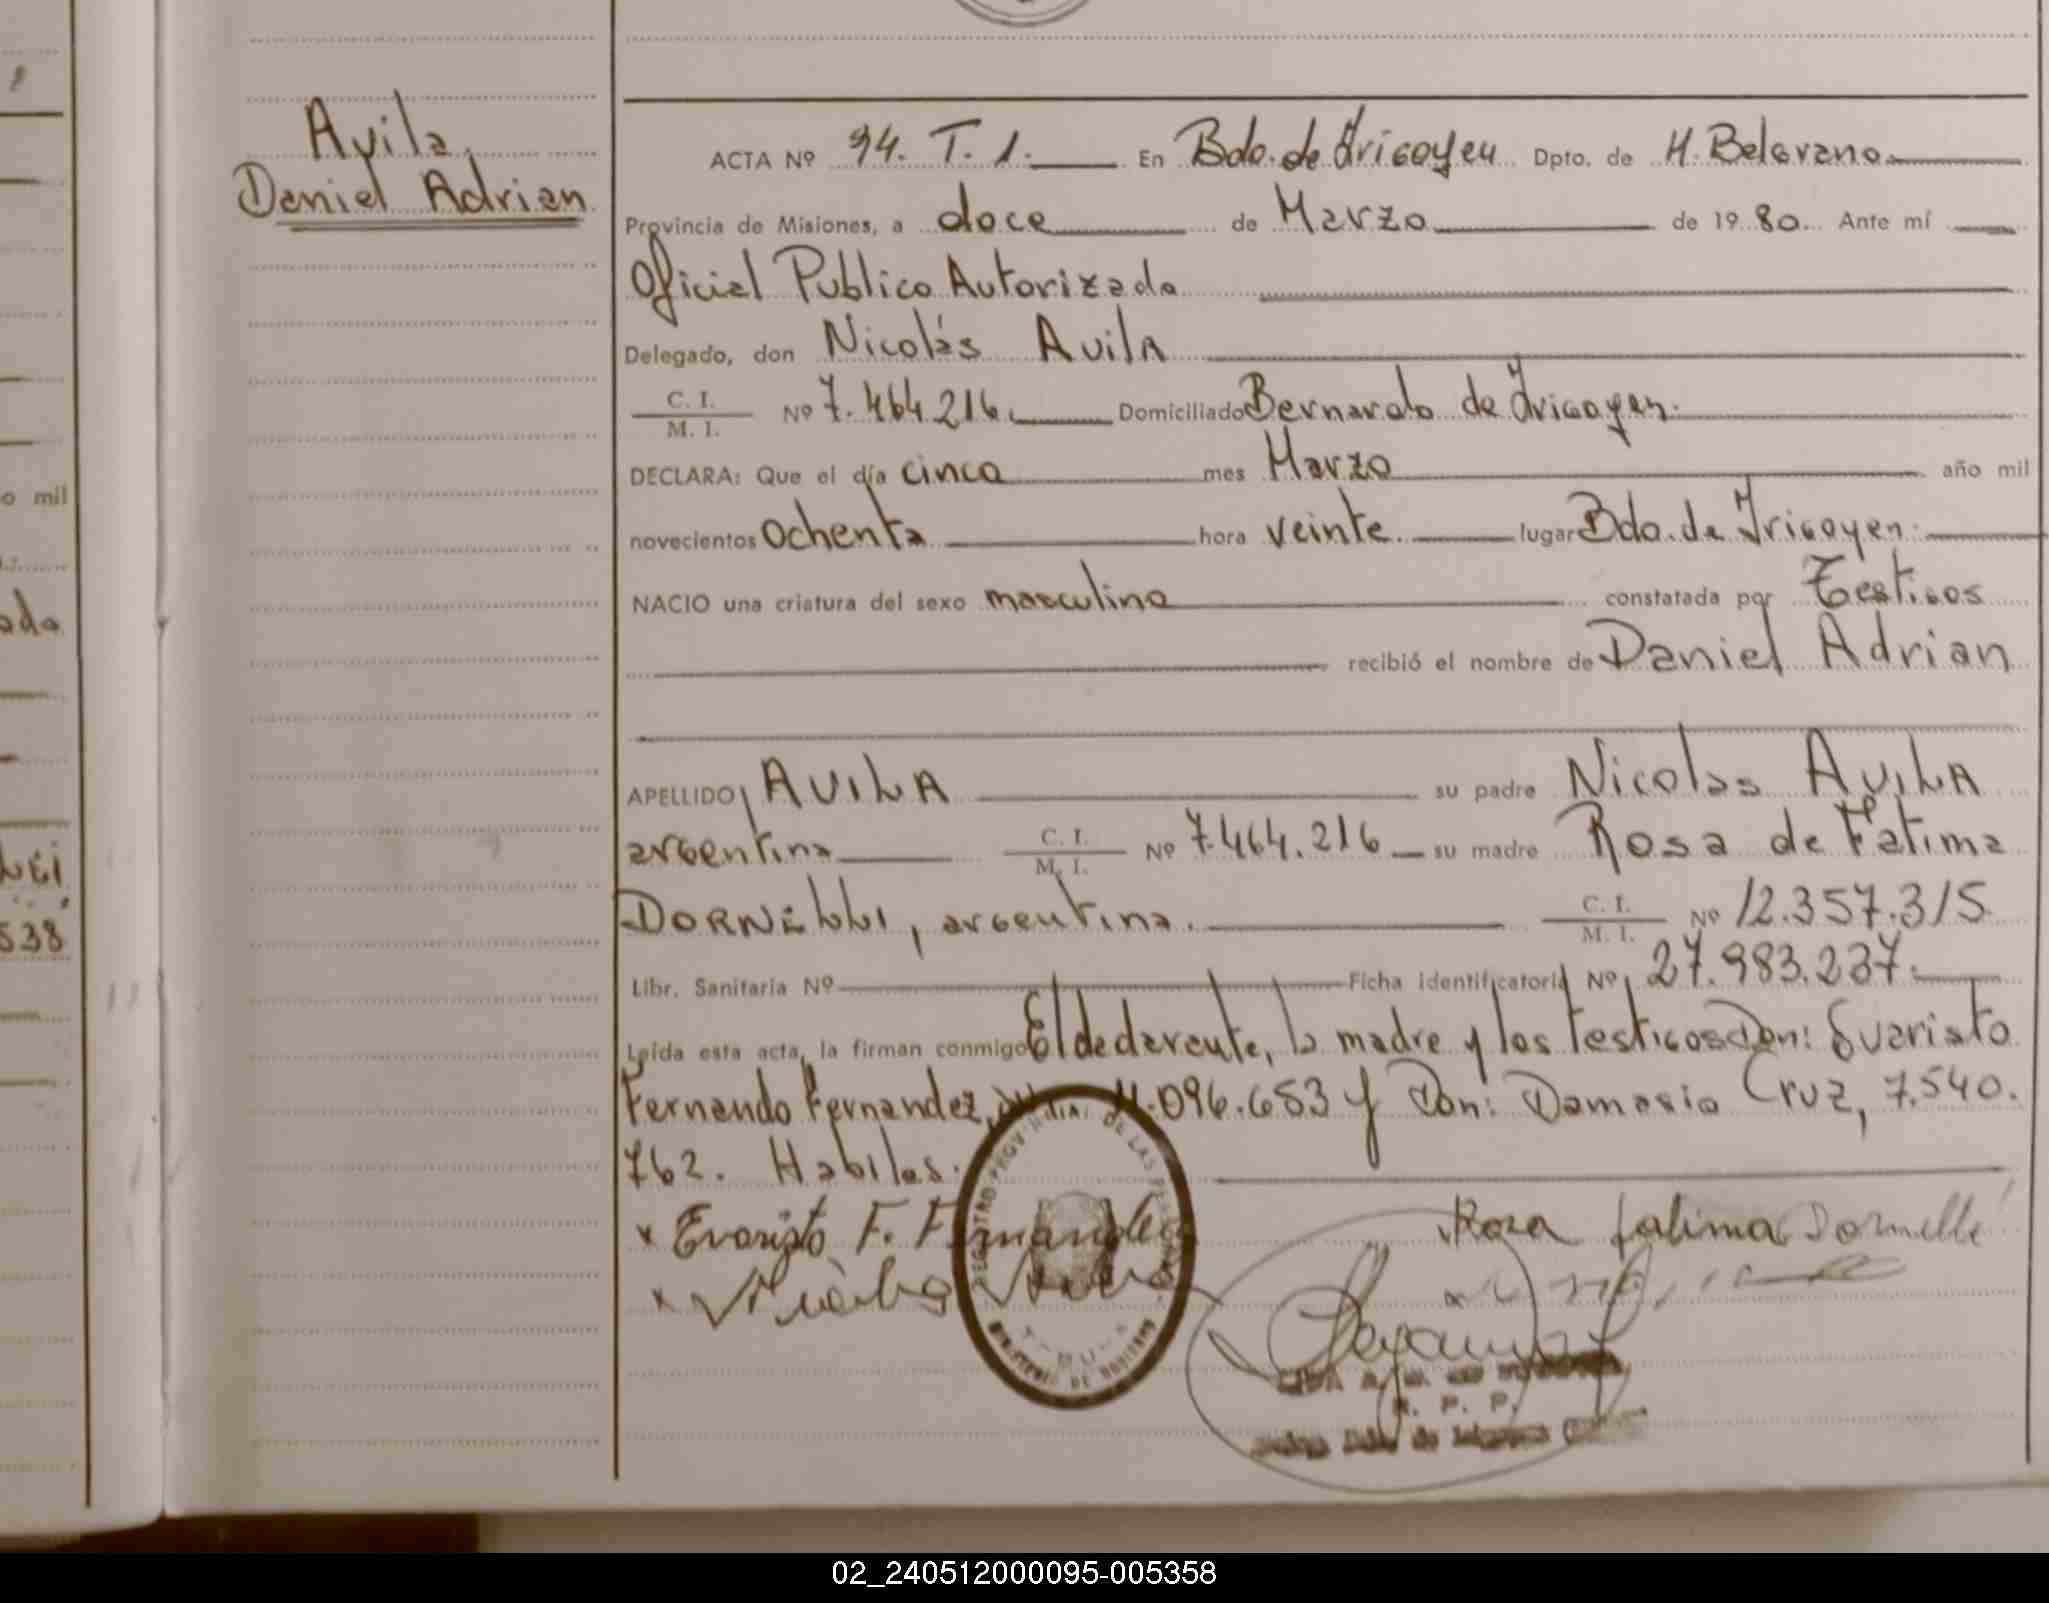 Avila,
Daniel Adrian
ACTA Nº 94. T. 1. En Bdo. de Irigoyen Dpto. de H. Belgrano
Provincia de Misiones, a doce de Marzo de 1980. Ante mí
Oficial Publico Autorizado
Delegado, don Nicolás Avila
C. I.
M. I. Nº 7.464.216. Domiciliado Bernardo de Irigoyen.
DECLARA: Que el día cinco mes Marzo año mil
novecientos ochenta hora veinte. lugar Bdo. de Irigoyen.
NACIO una criatura del sexo masculino constatada por Testigos
recibió el nombre de Daniel Adrian
APELLIDO AVILA su padre Nicolas AVILA
argentino C. I.
M. I. Nº 7.464.216 su madre Rosa de Fatima
DORNELLI, argentina. C. I.
M. I. Nº 12.357.315
Libr. Sanitaria Nº Ficha identificatoria Nº 27.983.237.
Leída esta acta, la firman conmigo El declarante, la madre y los testigos Don: Evaristo
Fernando Fernandez, 096.653 y Don: Damasio Cruz, 7.540.
762. Habiles.
x Evaristo F. Fernandez
Rosa fatima Dornelli
x
REGISTRO DE LAS
MINISTERIO DE GOBIERNO
R. P. P.
o mil
ado
538
02_240512000095-005358